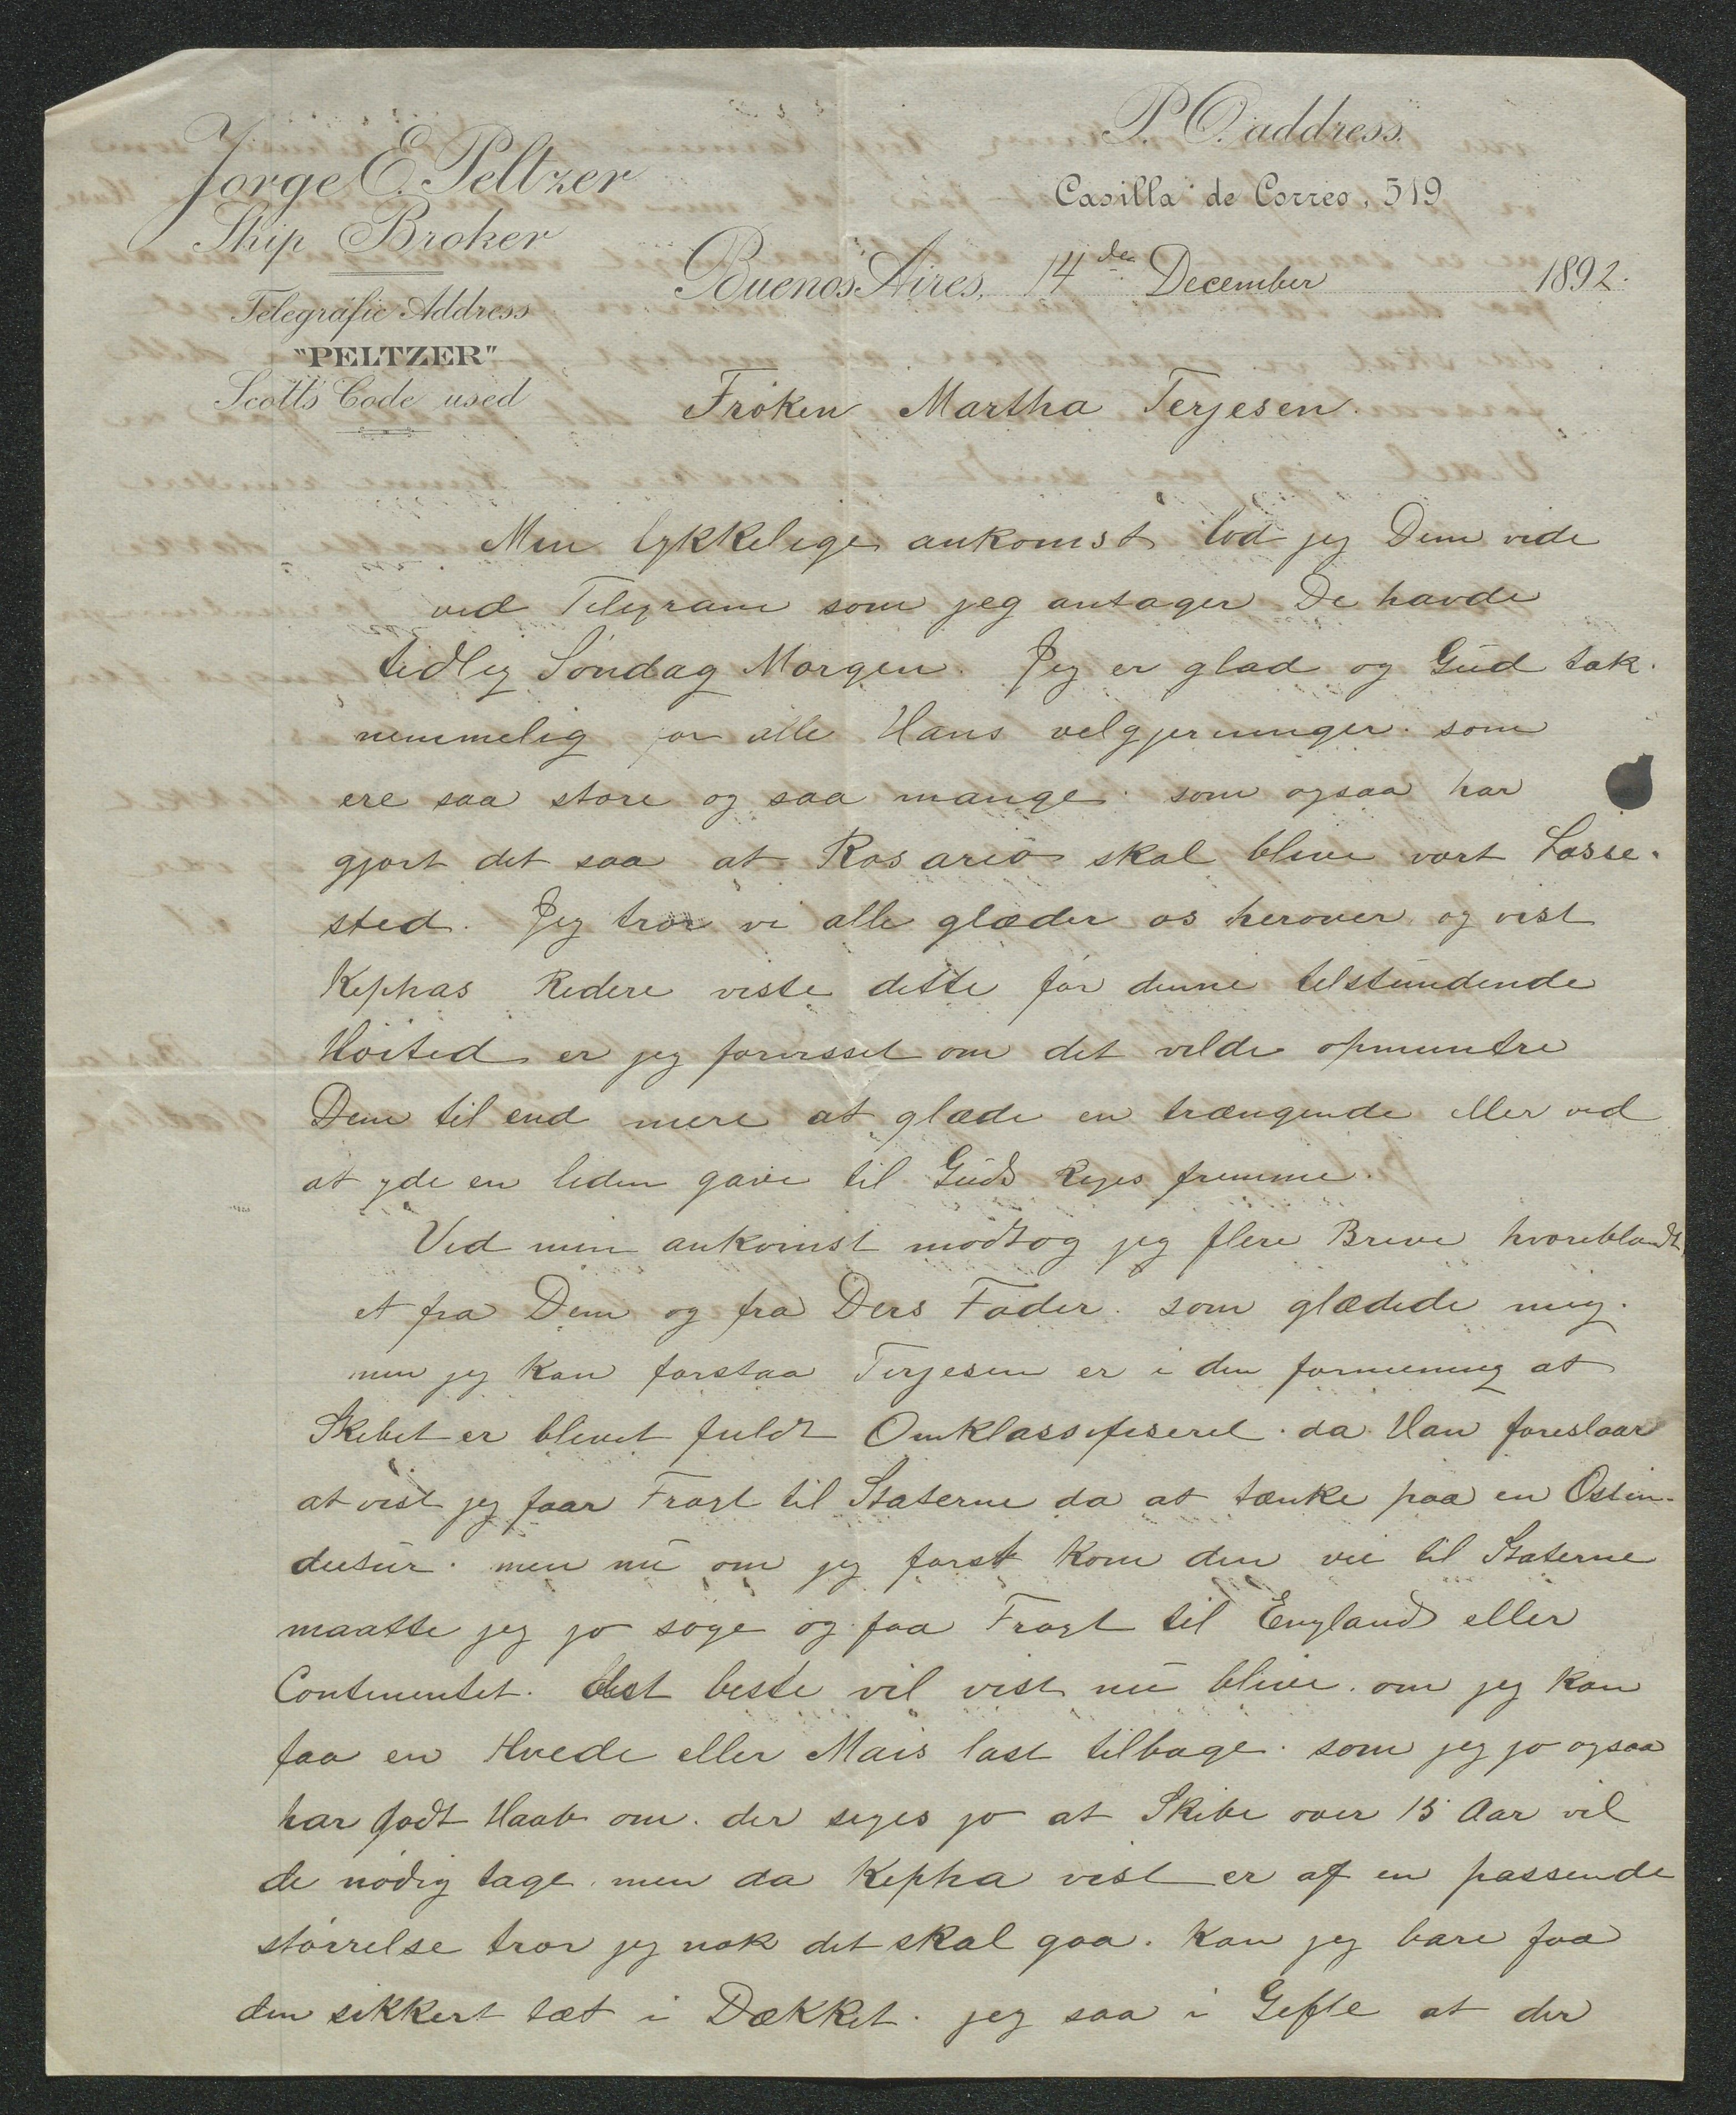 Jorge E. Peltzer
Ship Broker
Telegrafic Address
"PELTZER"
Scott's Code used
P. O. address.
Casilla de Correo, 519
Buenos Aires, 14de December 1892.
Fröken Martha Terjesen.
Min lykkelige ankomst lod jeg Dem vide
ved Telegram som jeg antager De havde
tidlig Söndag Morgen. Jeg er glad og Gud tak.
nemmelig for alle Hans velgjerninger. som
ere saa store og saa mange. som ogsaa har
gjort det saa at Rosario skal blive vort Losse.
sted. Jeg tror vi alle glæder os herover og vist
Kephas Redere viste dette för denne tilstundende
Höitid er jeg forvisset om det vilde opmuntre
Dem til end mere at glæde en trængende eller ved
at yde en liden gave til Guds Riges fremme.
Ved min ankomst modtog jeg flere Breve hvoreblandt
et fra Dem og fra Ders Fader. som glædede mig.
men jeg kan forstaa Terjesen er i den formening at
Skibet er blevet fuldt Omklassifiseret. da Han foreslaar
at vist jeg faar Fragt til Staterne da at tænke paa en Ostin-
dietur. men nu om jeg först kom den vei til Staterne
maatte jeg jo söge og faa Fragt til England eller
Continentet. det beste vil vist nu blive. om jeg kan
faa en Hvede eller Mais last tilbage. som jeg jo ogsaa
har godt Haab om. der siges jo at Skibe over 15 Aar vil
de nödig tage. men da Kepha vist er af en passende
störrelse tror jeg nok det skal gaa. Kan jeg bare faa
den sikkert tæt i Dækket. jeg saa i Gefle at der